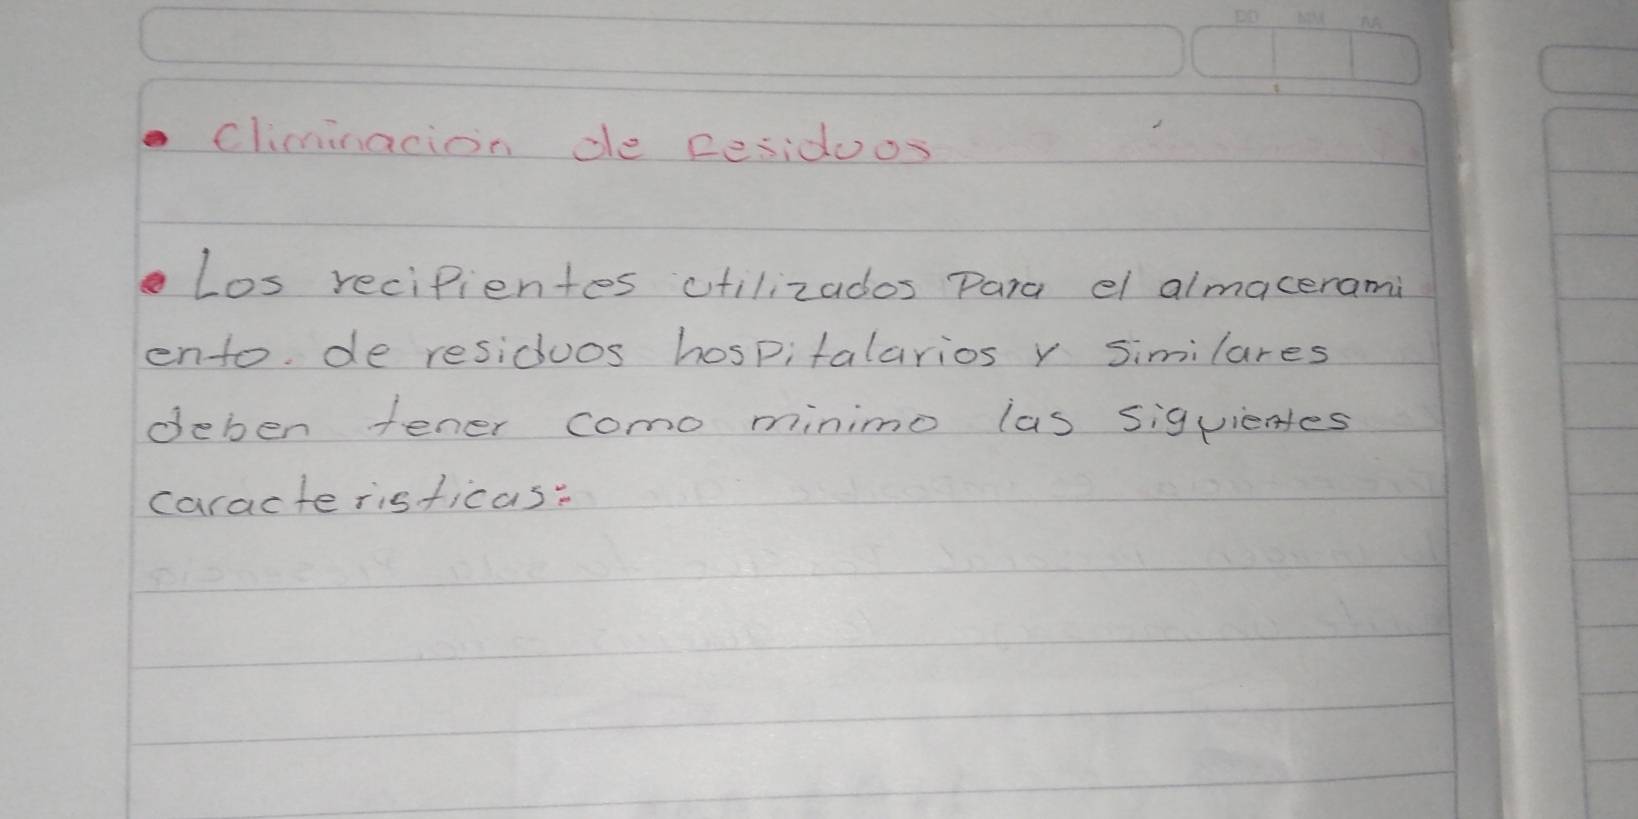 DD MM AA
• Eliminacion de residuos
• Los recipientes utilizados Para el almacerami
ento. de residuos hospitalarios y similares
deben tener como minimo las siguientes
caracteristicas: